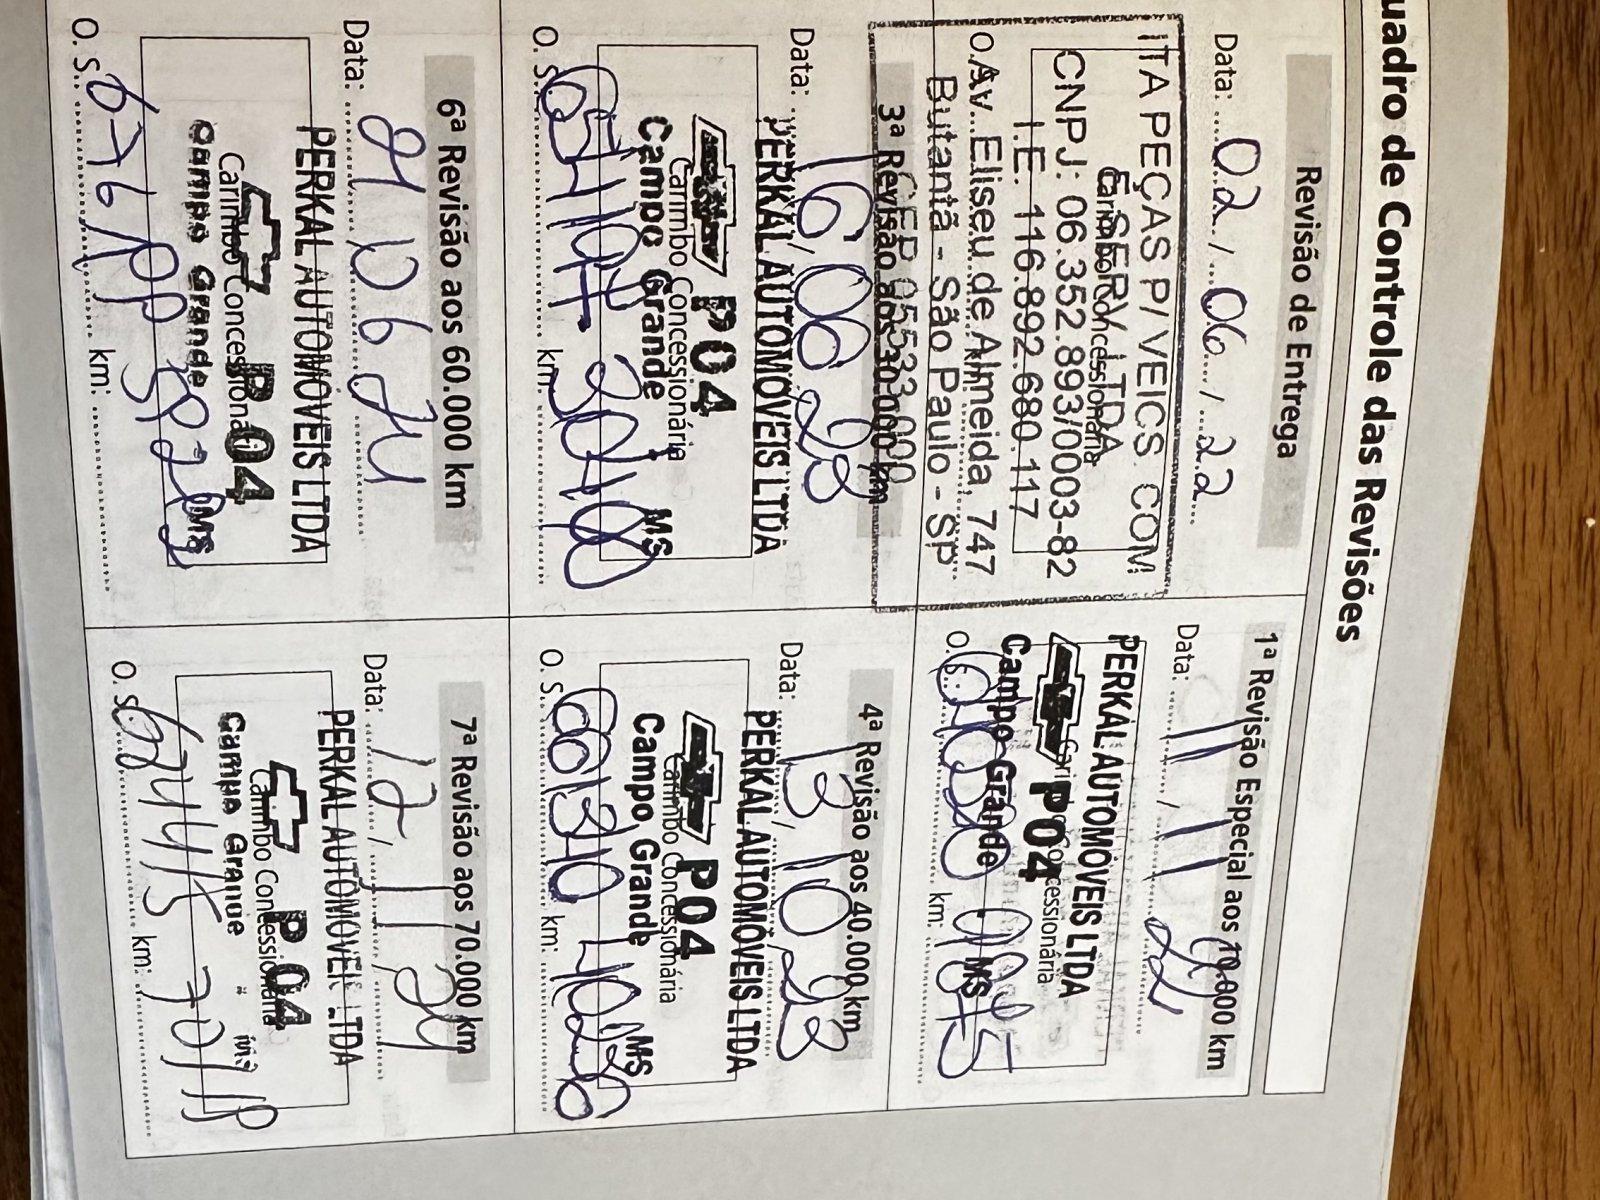 uadro de Controle das Revisões
Revisão de Entrega
Data: 02 / 06 / 22
ITA PEÇAS P/ VEICS. COM
E SERV. LTDA
Carimbo Concessionária
CNPJ: 06.352.893/0003-82
I.E. 116.892.680.117
O. S. km:
Av. Eliseu de Almeida, 747
Butantã - São Paulo - SP
CEP 05533-000
1ª Revisão Especial aos 10.000 km
Data: 11 / 11 / 22
PERKAL AUTOMÓVEIS LTDA
P04
Carimbo Concessionária
Campo Grande MS
O. S. km:
3ª Revisão aos 30.000 km
Data: 16 / 06 / 23
PERKAL AUTOMOVEIS LTDA
P04
Carimbo Concessionária
Campo Grande MS
O. S. km:
4ª Revisão aos 40.000 km
Data: 13 / 10 / 23
PERKAL AUTOMÓVEIS LTDA
P04
Carimbo Concessionária
Campo Grande MS
O. S. 661310 km: 40256
6ª Revisão aos 60.000 km
Data:
PERKAL AUTOMÓVEIS LTDA
P 04
Carimbo Concessionária
Campo Grande MS
O. S. km:
7ª Revisão aos 70.000 km
Data: 12 / 11 / 24
PERKAL AUTOMÓVEIS LTDA
P 04
Carimbo Concessionária
Campo Grande MS
O. S. km: